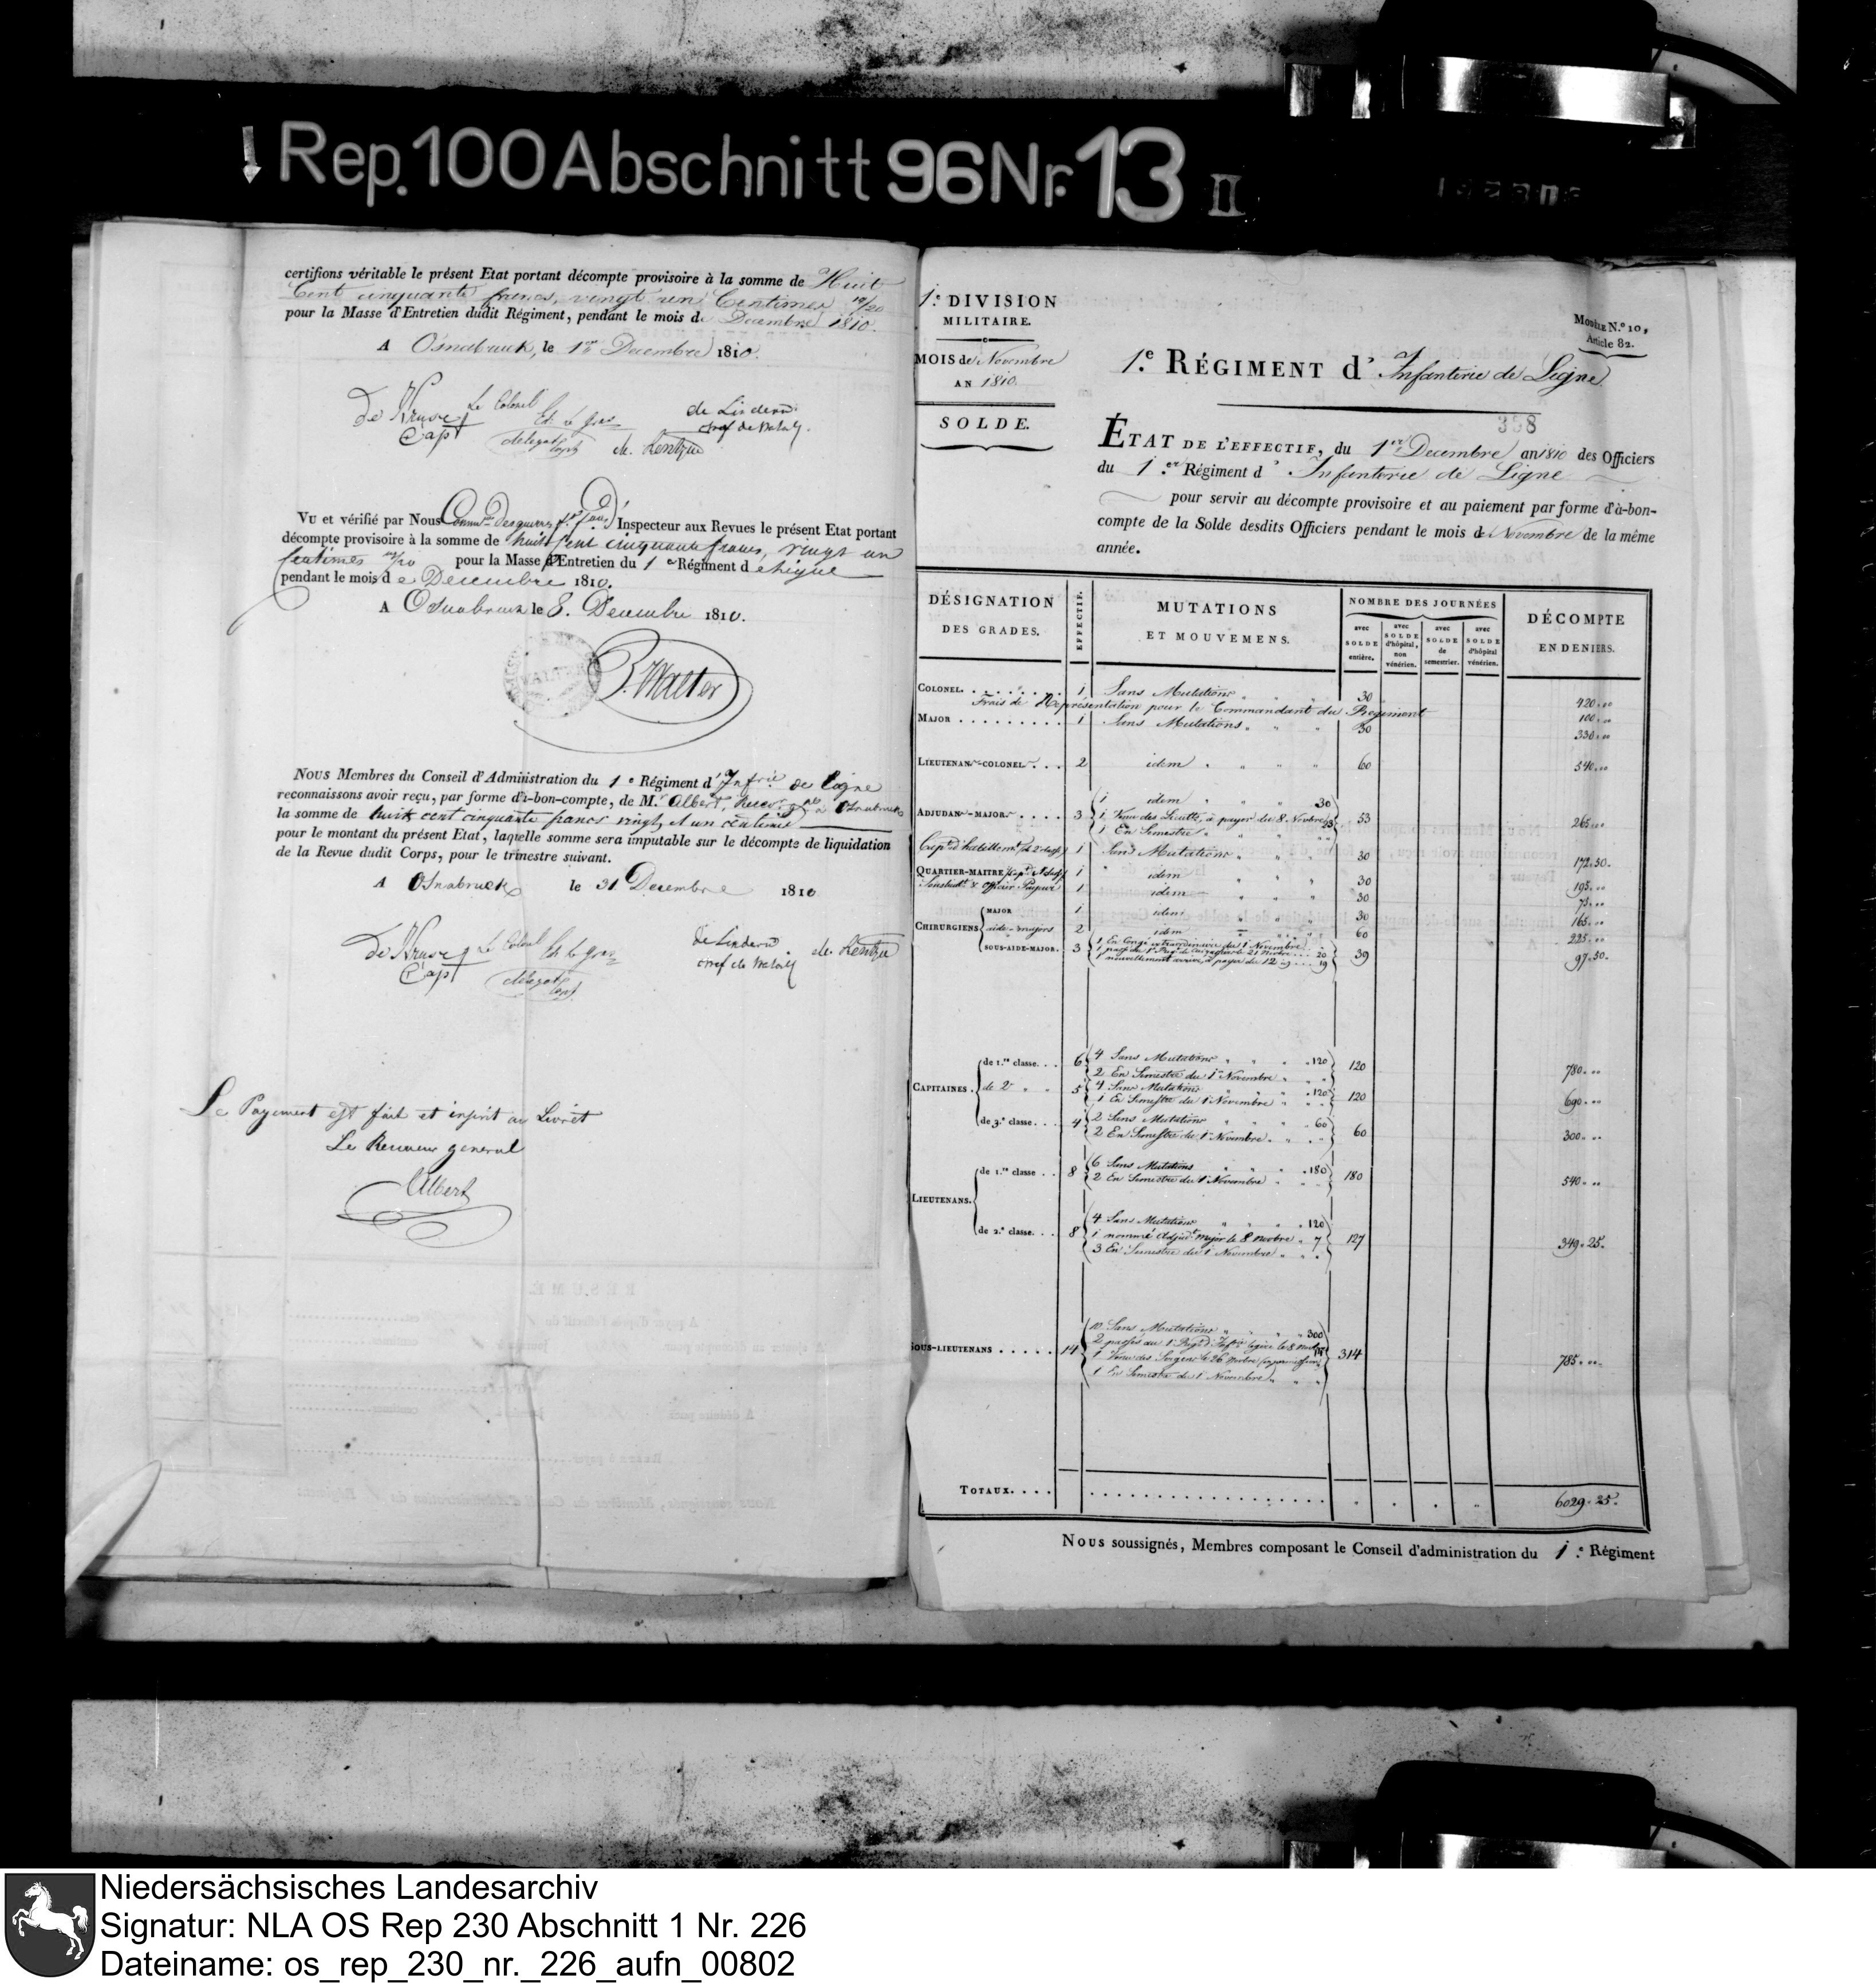 Rep. 100 Abschnitt 96 Nr. 13 II
certifions véritable le présent Etat portant décompte provisoire à la somme de Huit
Cent cinquante francs, vingt un Centimes 10/20
pour la Masse d'Entretien dudit Régiment, pendant le mois de Decembre 1810.
A Osnabruck, le 1er Decembre 1810.
De Kruse Le Colonel
Capt
de Lindern
delegat Capt
Vu et vérifié par Nous Inspecteur aux Revues le présent Etat portant
décompte provisoire à la somme de huit cent cinquante francs, vingt un
Centimes 10/20 pour la Masse d'Entretien du 1er Régiment de ligne
pendant le mois de Decembre 1810.
A Osnabruck le 8. Decembre 1810.
WALTER
B. Walter
Nous Membres du Conseil d'Administration du 1e Régiment d'Infrie de Ligne
reconnaissons avoir reçu, par forme d'à-bon-compte, de M. Albert, à Osnabruck
la somme de huit cent cinquante francs vingt et un centimes
pour le montant du présent Etat, laquelle somme sera imputable sur le décompte de liquidation
de la Revue dudit Corps, pour le trimestre suivant.
A Osnabruck le 31 Decembre 1810
De Kruse Le Colonel
Capt
de Lindern
delegat Capt
Le Payement est fait et inscrit au Livret
Le Receveur general
Albert
1.e DIVISION
MILITAIRE.
MOIS de Novembre
AN 1810.
SOLDE.
MODÈLE N.o 10,
Article 82.
1.e RÉGIMENT d' Infanterie de Ligne
398
ÉTAT DE L'EFFECTIF, du 1er Decembre an 1810 des Officiers
du 1.er Régiment d' Infanterie de Ligne
pour servir au décompte provisoire et au paiement par forme d'à-bon-
compte de la Solde desdits Officiers pendant le mois de Novembre de la même
année.
DÉSIGNATION DES GRADES. EFFECTIF. MUTATIONS ET MOUVEMENS. NOMBRE DES JOURNÉES DÉCOMPTE EN DENIERS.
avec SOLDE entière. avec SOLDE d'hôpital, non vénérien. avec SOLDE de semestrier. avec SOLDE d'hôpital vénérien.
COLONEL. 1 Sans Mutations 30 420.
Frais de Représentation pour le Commandant du Regiment 100.
MAJOR 1 Sans Mutations 30 330.
LIEUTENANT-COLONEL 2 idem 60 540.
ADJUDANT-MAJOR 3 53 265.
1 idem 30
1 Venu des Lieutts, à payer du 8. Novbre 23
1 En Semestre
Capt. d'habillemt. (de 2 classe) 1 Sans Mutations 30 172.50.
QUARTIER-MAITRE 1 idem 30 195.
Officier Payeur 1 idem 30 75.
CHIRURGIENS
MAJOR 1 idem 30 165.
aide-majors 2 idem 60 225.
SOUS-AIDE-MAJOR. 3 39 97.50.
1 En Congé extraordinaire du 1 Novembre
CAPITAINES
de 1.re classe 6 120 780.
4 Sans Mutations 120
2 En Semestre du 1 Novembre
de 2e 5 120 690.
4 Sans Mutations 120
1 En Semestre du 1 Novembre
de 3.e classe 4 60 300.
2 Sans Mutations 60
2 En Semestre du 1 Novembre
LIEUTENANS.
de 1.re classe 8 180 540.
6 Sans Mutations 180
2 En Semestre du 1 Novembre
de 2.e classe 8 127 349.25.
4 Sans Mutations 120
1 nommé Adjudt. Major le 8 Novbre 7
3 En Semestre du 1 Novembre
SOUS-LIEUTENANS 14 314 785.
10 Sans Mutations 300
2 passés au 1 Regt. d'Infrie legere le 8 Novbre 14
1 En Semestre du 1 Novembre
TOTAUX. 6029.25.
Nous soussignés, Membres composant le Conseil d'administration du 1.e Régiment
Niedersächsisches Landesarchiv
Signatur: NLA OS Rep 230 Abschnitt 1 Nr. 226
Dateiname: os_rep_230_nr._226_aufn_00802